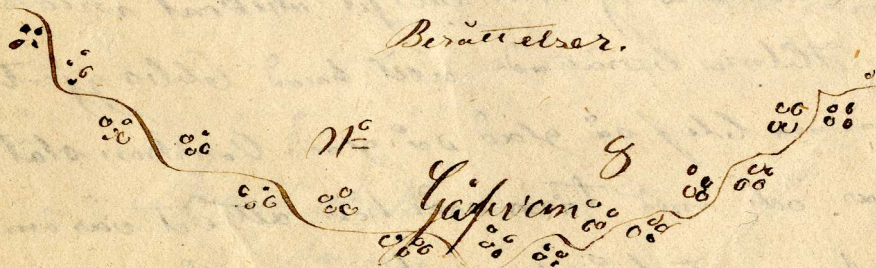 Berättelser.
No 8
Gåfvan